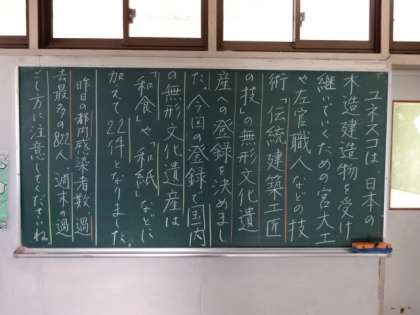 ユネスコは、日本の
木造建造物を受け
継いでいくための宮大工
や左官職人などの技
術「伝統建築工匠
の技」の無形文化遺
産への登録を決めまし
た。今回の登録で国内
の無形文化遺産は
「和食」や「和紙」などに
加えて22件となりました。
昨日の都内感染者数過
去最多の822人、週末の過
ごし方に注意してくださいね